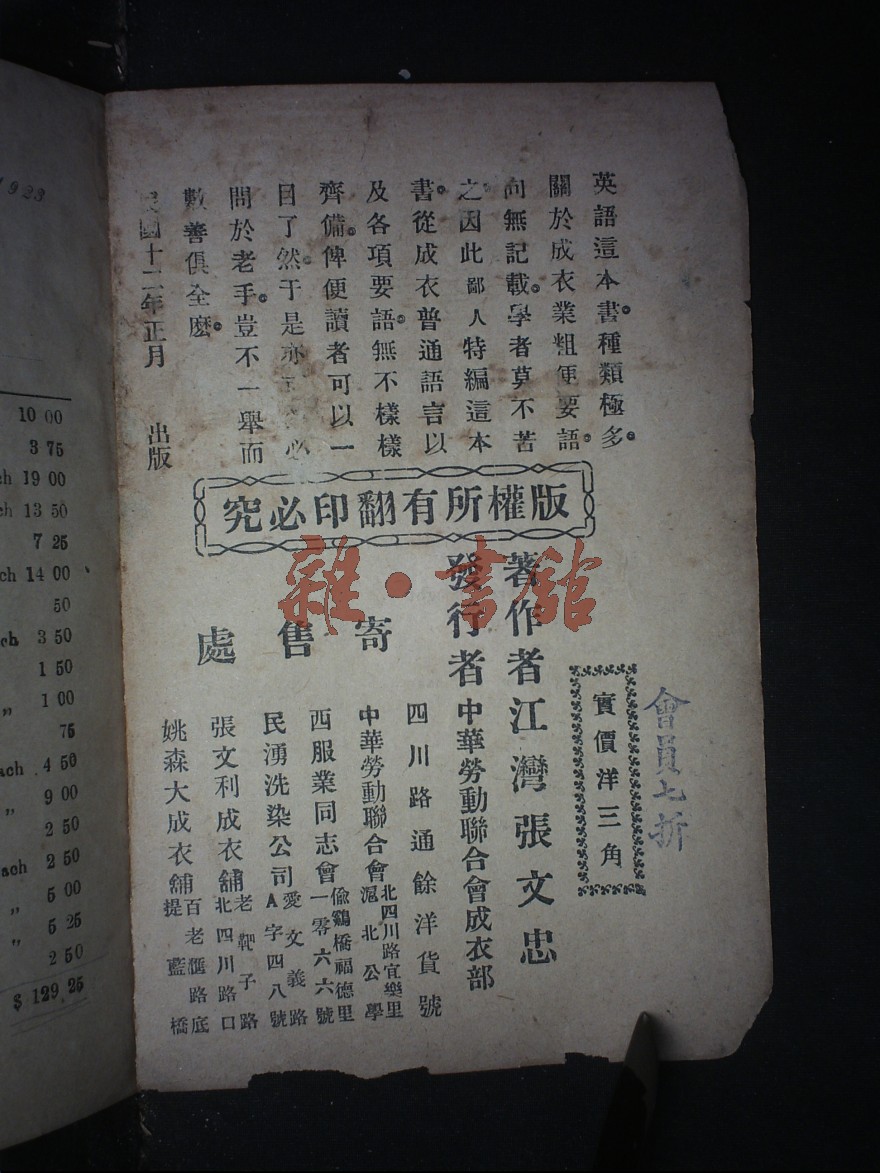 英語這本書。種類極多。
關於成衣業粗便要語。
向無記載。學者莫不苦
之因此鄙人特編這本
書。從成衣普通語言以
及各項要語。無不樣樣
齊備。俾便讀者可以一
目了然。于是亦 必
問於老手。豈不一舉而
數善俱全麽。
民國十二年正月 出版
版權所有翻印必究
會員七折
實價洋三角
著作者江灣張文忠
發行者中華勞動聯合會成衣部
寄售處
四川路通餘洋貨號
中華勞動聯合會 北四川路宜樂里滬北公學
西服業同志會 偷鷄橋福德里一零六六號
民湧洗染公司 愛文義路A字四八號
張文利成衣舖 老靶子路北四川路口
姚森大成衣舖 百老匯路底提藍橋
雜·書館
1923
10 00
3 75
ach 19 00
ch 13 50
7 25
ach 14 00
50
ch 3 50
1 50
„ 1 00
75
ach 4 50
„ 9 00
2 50
ach 2 50
„ 5 00
„ 5 25
2 50
$ 129.25